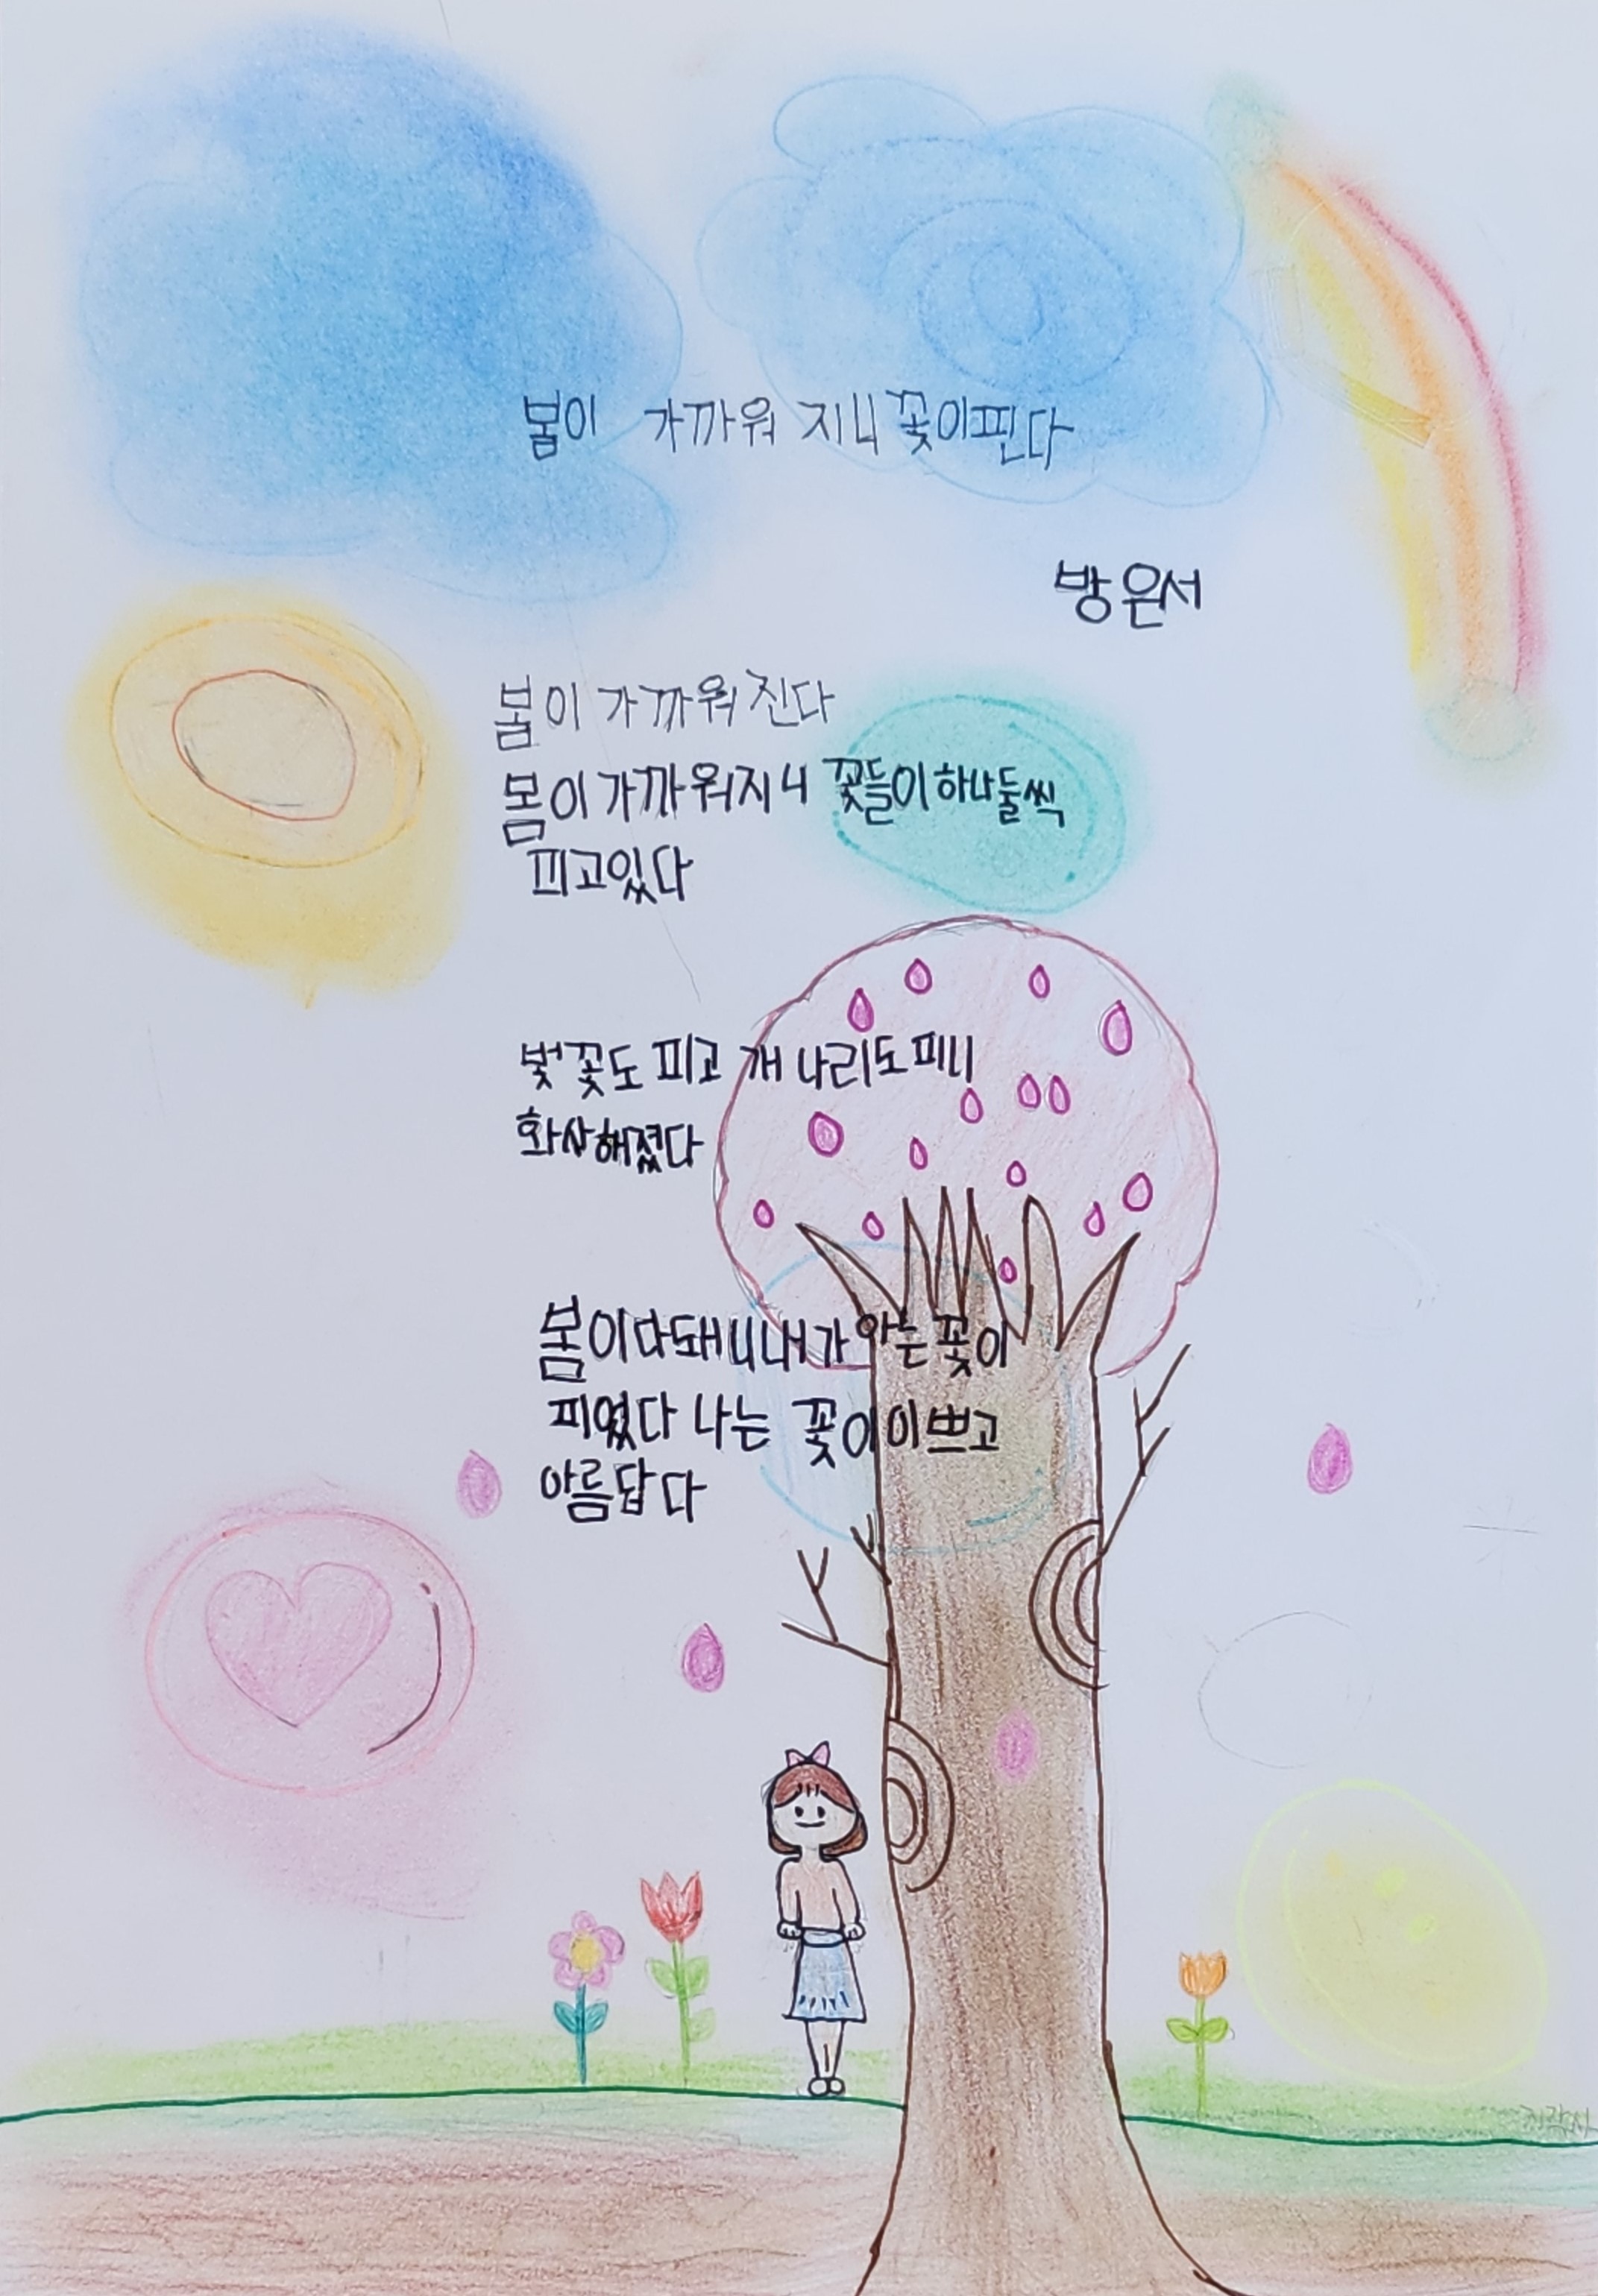 봄이 가까워 지니 꽃이핀다
방은서
봄이 가까워진다
봄이 가까워지니 꽃들이 하나둘씩
피고있다
벚꽃도 피고 개나리도 피니
화사해졌다
봄이다돼니 내가 아는 꽃이
피였다 나는 꽃이 이쁘고
아름답다